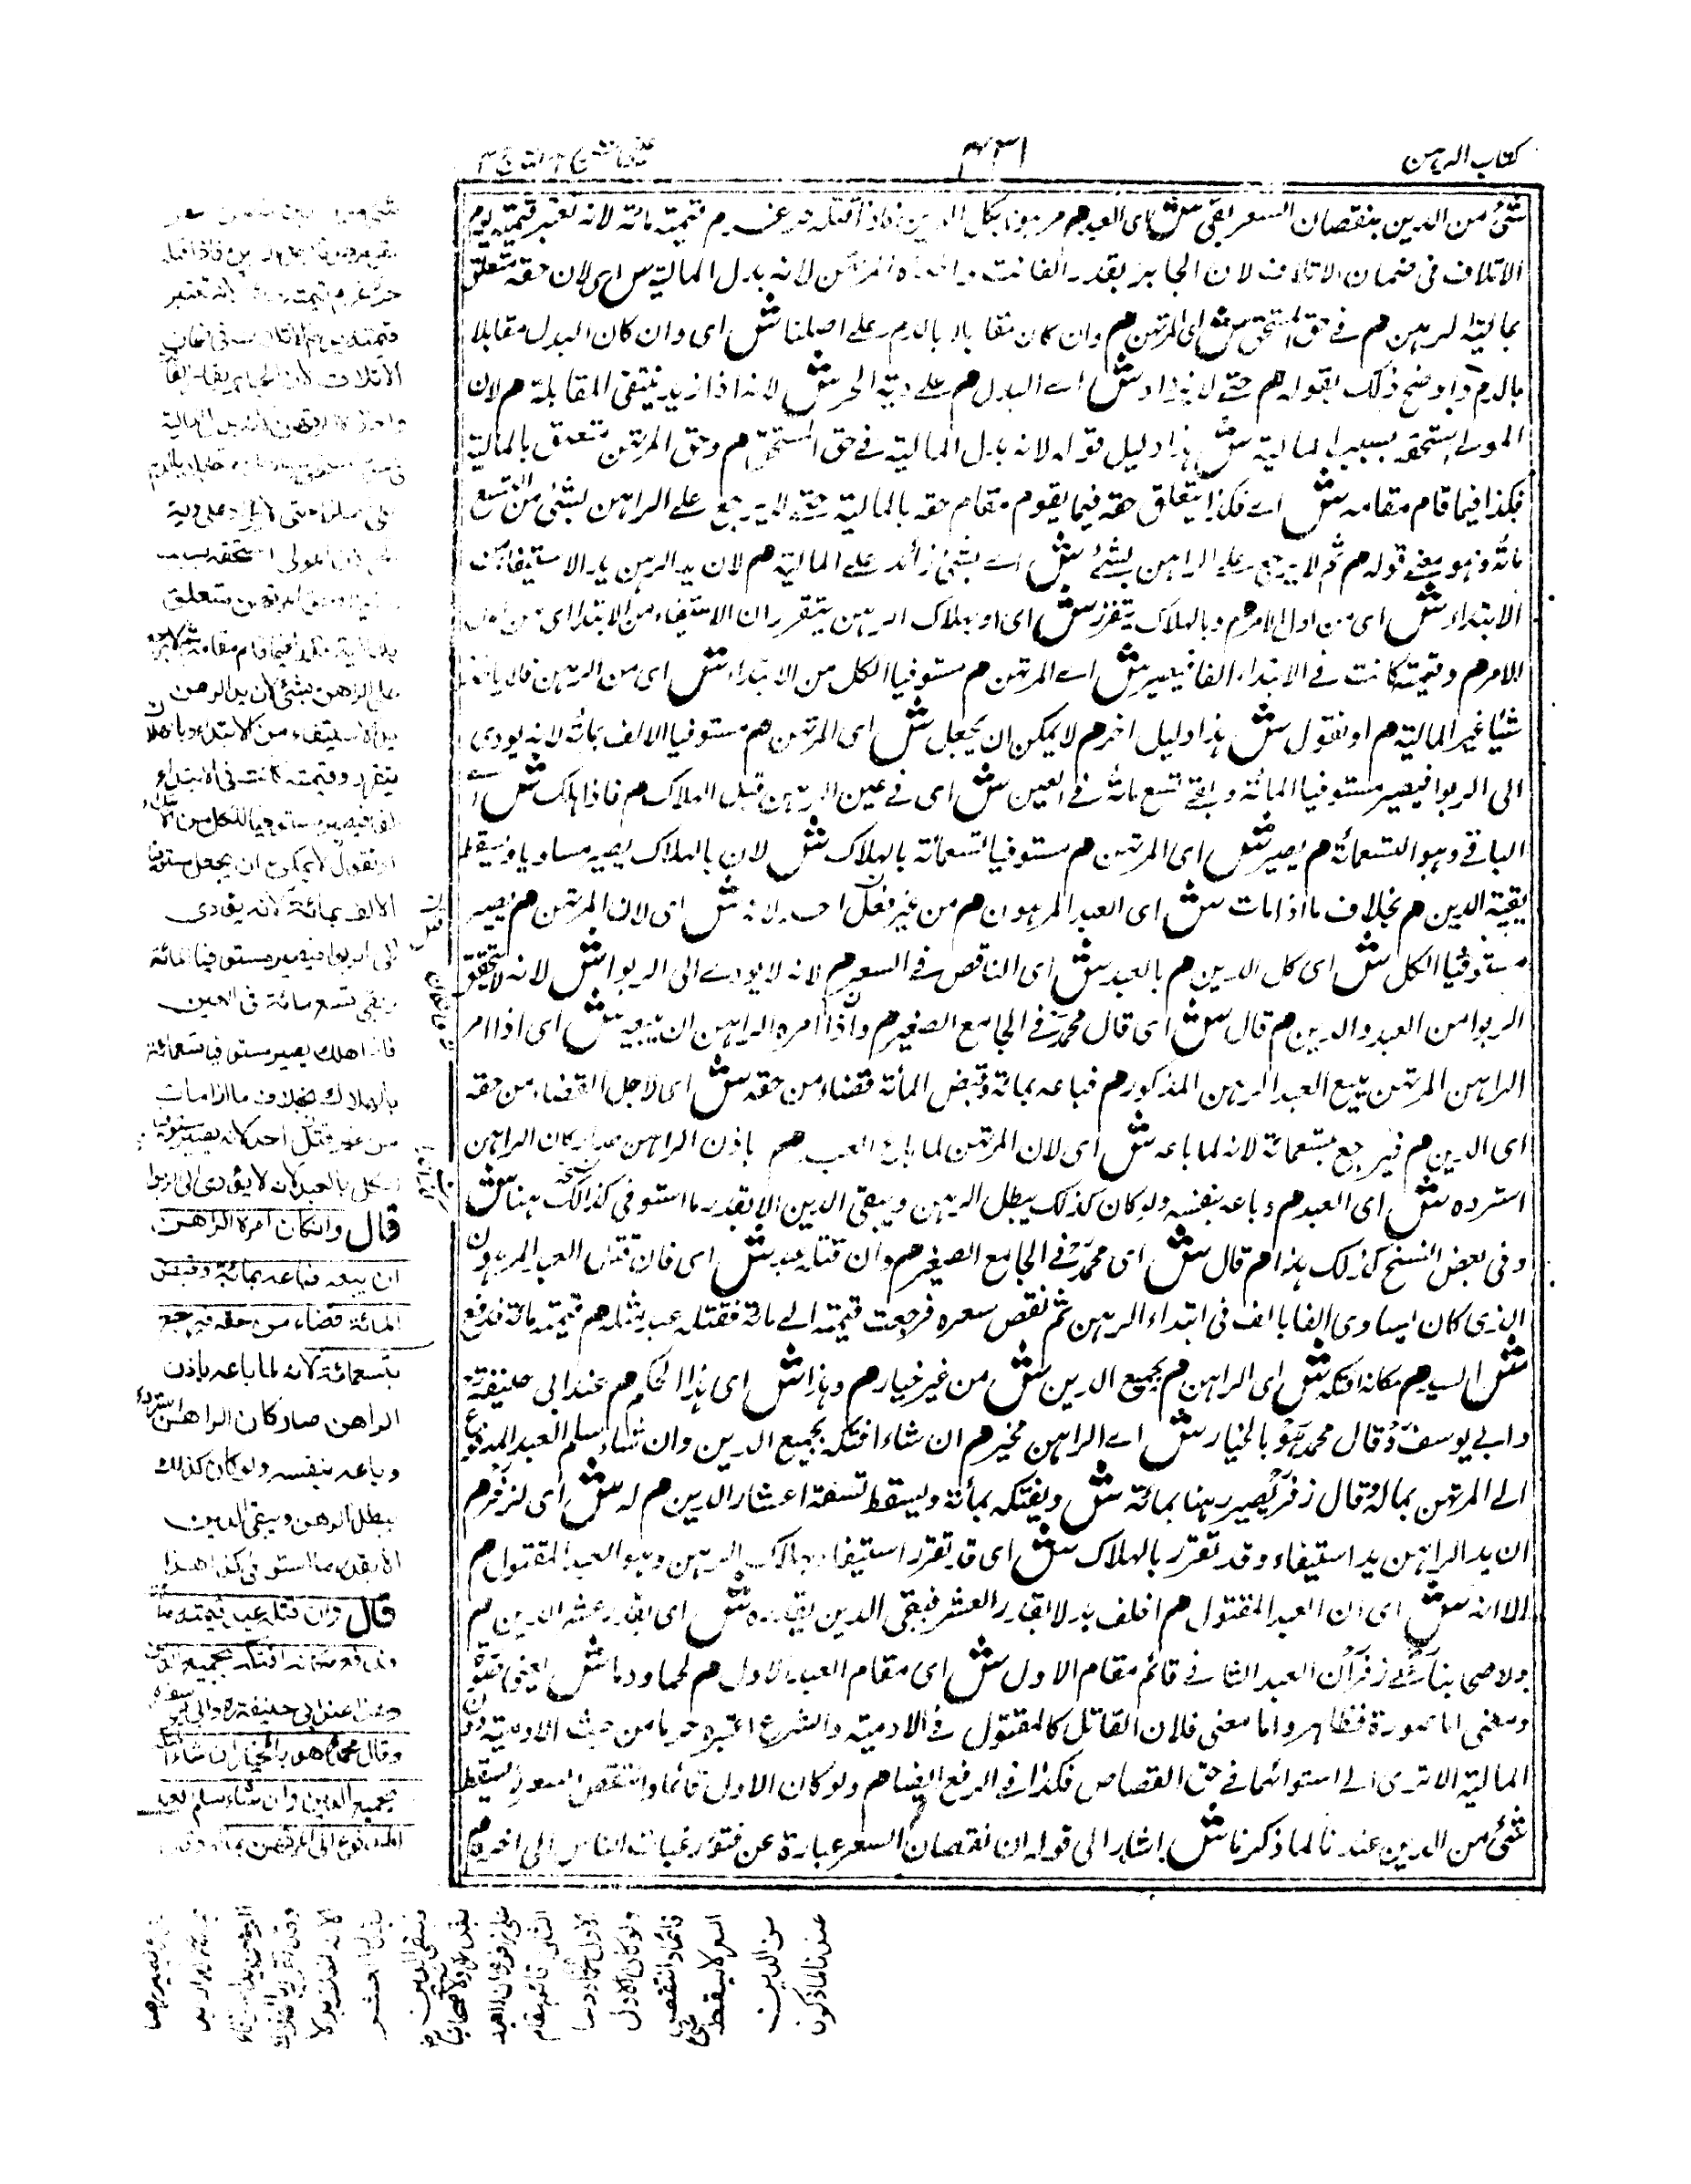 كتاب الرهن
٣٣١
شئ من الدين بنقصان السعر بقى ش اى العبد م مرهونا بكل الدين فاذا قتله حر غرم قيمته مائة لانه تعتبر قيمته يوم
الاتلاف فى ضمان الاتلاف لان الجابر بقدر الفائت واخذه المرتهن لانه بدل المالية س اى لان حقه متعلق
بمالية الرهن م فے حق المستحق ش اى المرتهن م وان كان مقابلا بالدم على اصلنا ش اى وان كان البدل مقابلا
بالدم واوضح ذلك بقوله م حتے لا يزاد ش اے البدل م علے دية الحر ش لانه اذا زيد ينتفى المقابلة م لان
المولے استحقه بسبب المالية ش هذا دليل قوله لانه بدل المالية فے حق المستحق م وحق المرتهن متعلق بالمالية
فكذا فيما قام مقامه ش اے فكذا يتعلق حقه فيما يقوم مقام حقه بالمالية حتے لا يرجع علے الراهن بشئ من التسع
مائة وهو معنے قوله م ثم لا يرجع علے الراهن بشئ ش اے بشئ زائد علے المالية م لان يد الرهن يد الاستيفاء من
الابتداء ش اى من اول الامر م وبالهلاك يتقرر ش اى او بهلاك الرهن يتقرر ان الاستيفاء من الابتداء اى من اول
الامر م وقيمته كانت فے الابتداء الفا فيصير ش اے المرتهن م مستوفيا الكل من الابتداء ش اى من الرهن فلا ياخذ
شيئا غير المالية م او نقول ش هذا دليل اخر م لا يمكن ان يجعل ش اى المرتهن م مستوفيا الالف بمائة لانه يودى
الى الربوا فيصير مستوفيا المائة وبقے تسع مائة فے العين ش اى فے عين الرهن قبل الهلاك م فاذا هلك ش اے
الباقے وهو التسعمائة م يصير ش اى المرتهن م مستوفيا تسعمائة بالهلاك ش لان بالهلاك يصير مساويا ويسقط
بقية الدين م بخلاف ما اذا مات ش اى العبد المرهون م من غير فعل احد لانه ش اى لان المرتهن م يصير
مستوفيا الكل ش اى كل الدين م بالعبد ش اى الناقص فے السعر م لانه لا يودے الى الربوا ش لانه لا يتحقق
الربوا من العبد والدين م قال ش اى قال محمد فے الجامع الصغير م واذا امره الراهن ان يبيعه ش اى اذا امر
الراهن المرتهن ببيع العبد الرهن المذكور م فباعه بمائة وقبض المائة قضاء من حقه ش اى لاجل القضاء من حقه
اى الدين م فيرجع بتسعمائة لانه لما باعه ش اى لان المرتهن لما باع العبد م باذن الراهن صار كان الراهن
استرده ش اى العبد م وباعه بنفسه ولو كان كذلك يبطل الرهن ويبقى الدين الا بقدر ما استوفى كذلك ههنا ش
وفى بعض النسخ كذلك هذا م قال ش اى محمد فے الجامع الصغير م وان قتله عبد ش اى فان قتل العبد المرهون
الذى كان يساوى الفا بالف فى ابتداء الرهن ثم نقص سعره فرجعت قيمته الے مائة فقتله عبد مثله م قيمته مائة فدفع
ش اى السيد م مكانه افتكه ش اى الراهن م بجميع الدين ش من غير خيار م وهذا ش اى هذا الحكم م عند ابى حنيفة
وابے يوسف وقال محمد هو بالخيار ش اے الراهن مخير م ان شاء افتكه بجميع الدين وان شاء سلم العبد المدفوع
الے المرتهن بماله وقال زفر يصير رهنا بمائة ش ويفتكه بمائة ويسقط تسعة اعشار الدين م له ش اى لزفر م
ان يد الراهن يد استيفاء وقد تقرر بالهلاك ش اى قد تقرر استيفاء بهلاك الرهن وهو العبد المقتول م
الا انه ش اى ان العبد المقتول م اخلف بدلا بقدر العشر فبقى الدين بقدره ش اى بقدر عشر الدين م
ولاصحابنا علے زفر ان العبد الثانے قائم مقام الاول ش اى مقام العبد الاول م لحما ودما ش يعنى صورة
ومعنى اما صورة فظاهر واما معنى فلان القاتل كالمقتول فے الادمية والشرع اعتبره جزءا من حيث الادمية دون
المالية الا ترى الے استوائهما فے حق القصاص فكذا فے الدفع ايضا م ولو كان الاول قائما وانتقص السعر لا يسقط
شئ من الدين عندنا لما ذكرنا ش اشار الى قوله ان نقصان السعر عبارة عن فتور رغبات الناس الى اخره م
الاتلاف لان الجابر بقدر الفائت
على الراهن بشئ لان يد الرهن
يد الاستيفاء من الابتداء وبالهلاك
يتقرر وقيمته كانت فى الابتداء
الفا فيصير مستوفيا للكل من الابتداء
او نقول لا يمكن ان يجعل مستوفيا
الالف بمائة لانه يؤدى
الى الربوا فيصير مستوفيا المائة
وبقى تسع مائة فى العين
فاذا هلك يصير مستوفيا تسعمائة
بالهلاك بخلاف ما اذا مات
من غير قتل احد لانه يصير مستوفيا
الكل بالعبد لانه لا يؤدى الى الربوا
قال وان كان امره الراهن
ان يبيعه فباعه بمائة وقبض
المائة قضاء من حقه فيرجع
بتسعمائة لانه لما باعه باذن
الراهن صار كان الراهن استرده
وباعه بنفسه ولو كان كذلك
يبطل الرهن ويبقى الدين
الا بقدر ما استوفى كذا هذا
قال وان قتله عبد قيمته مائة
فدفع مكانه افتكه بجميع الدين
وهذا عند ابى حنيفة وابى يوسف
وقال محمد هو بالخيار ان شاء افتكه
بجميع الدين وان شاء سلم العبد
المدفوع الى المرتهن بماله وقال
بقدر العشر
فيبقى الدين
بقدره ولاصحابنا
على زفر ان العبد
الثانى قائم مقام
الاول لحما ودما
ولو كان الاول
قائما وانتقص
السعر لا يسقط شئ
من الدين
عندنا لما ذكرنا